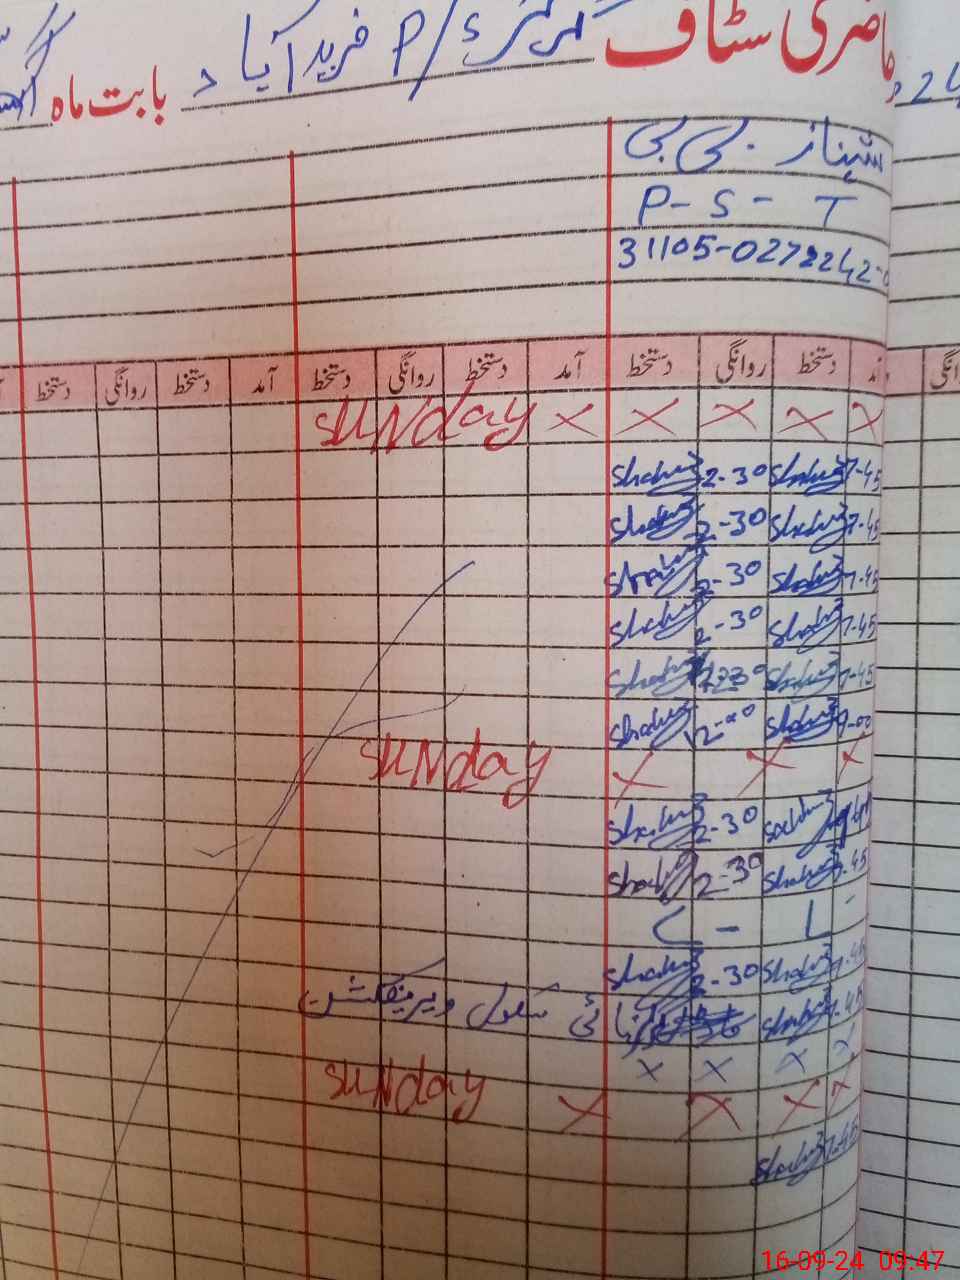 حاضری سٹاف گرلز P/S فرید آباد بابت ماہ
24
شہناز بی بی
P-S-T
31105-0272242-
آمد دستخط روانگی دستخط آمد دستخط روانگی دستخط آمد دستخط روانگی دستخط
روانگی
x x x x x Sunday
7-45 Shahnaz 2-30 Shahnaz
7-45 Shahnaz 2-30 Shahnaz
7-45 Shahnaz 2-30 Shahnaz
7-45 Shahnaz 2-30 Shahnaz
7-45 Shahnaz 2-30 Shahnaz
Shahnaz 12-00 Shahnaz
x x x Sunday
Shahnaz 2-30 Shahnaz
7-45 Shahnaz 2-30 Shahnaz
L -
7-45 Shahnaz 2-30 Shahnaz
7-45 Shahnaz سکول ویریفکیشن
x x x x
x x x x Sunday
7-45 Shahnaz
16-09-24 09:47